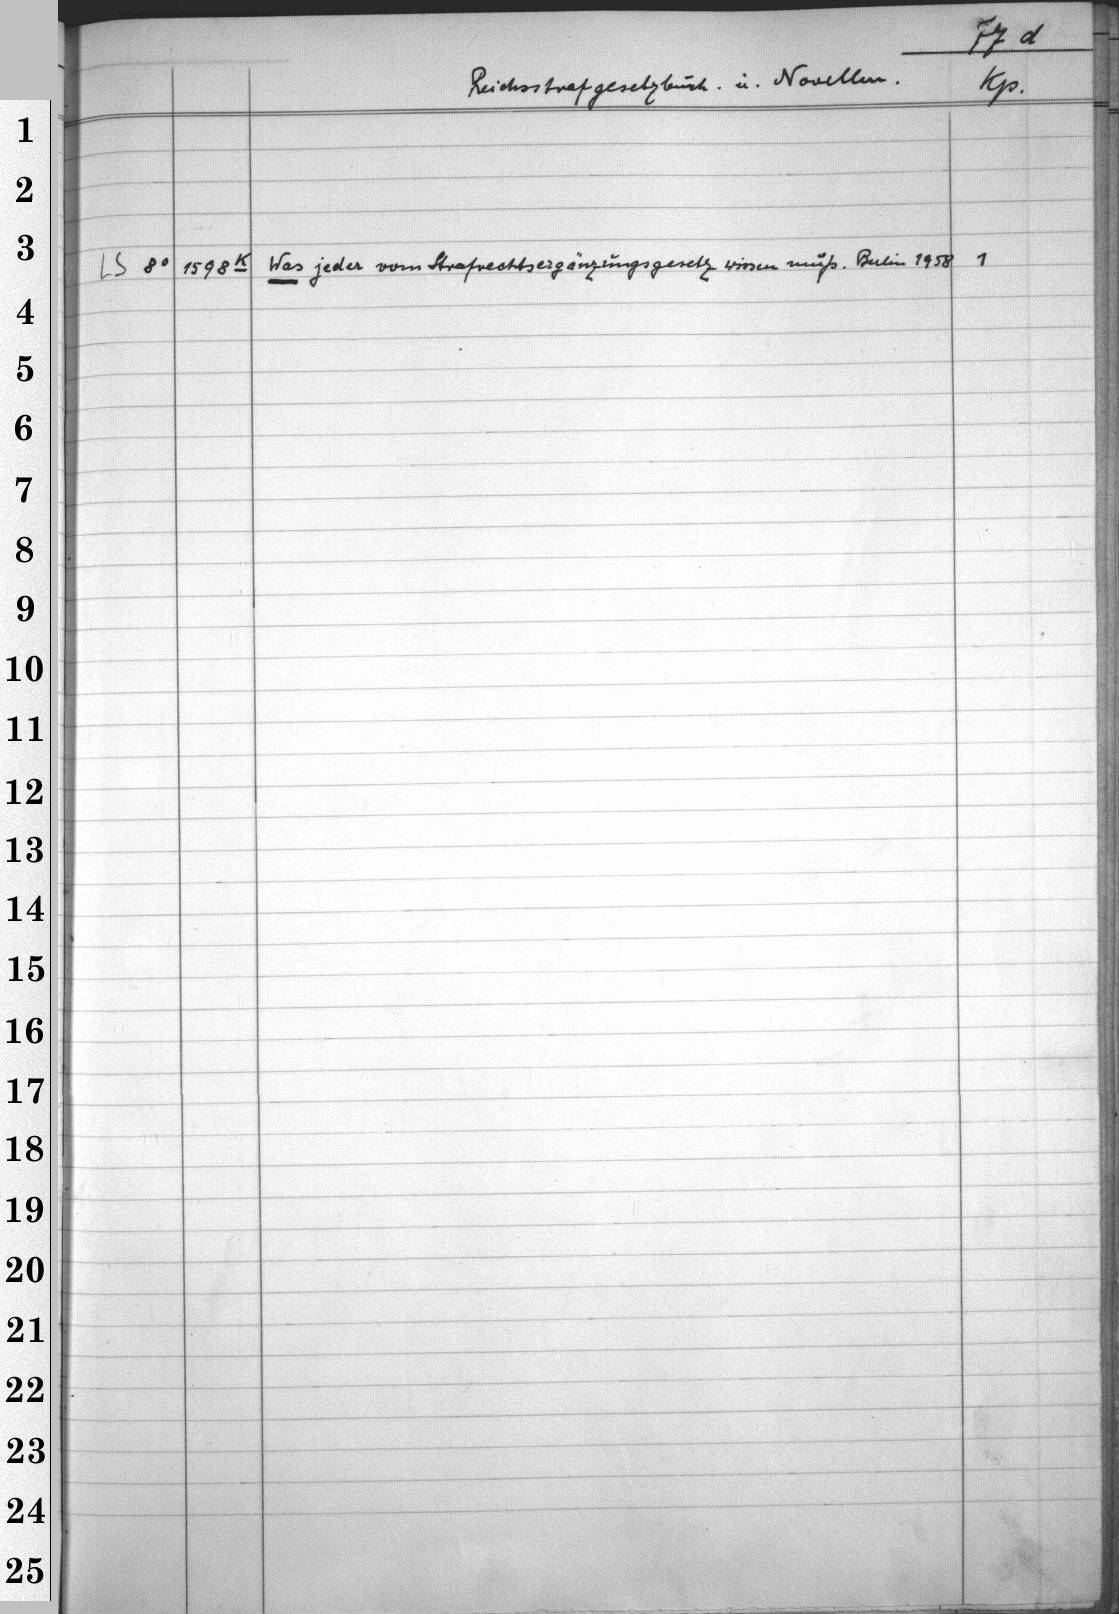 77 d
Reichsstrafgesetzbuch. u. Novellen. Kp.
1
2
3
LS 8° 1598 K Was jeder vom Strafrechtsergänzungsgesetz wissen muß. Berlin 1958 1
4
5
6
7
8
9
10
11
12
13
14
15
16
17
18
19
20
21
22
23
24
25